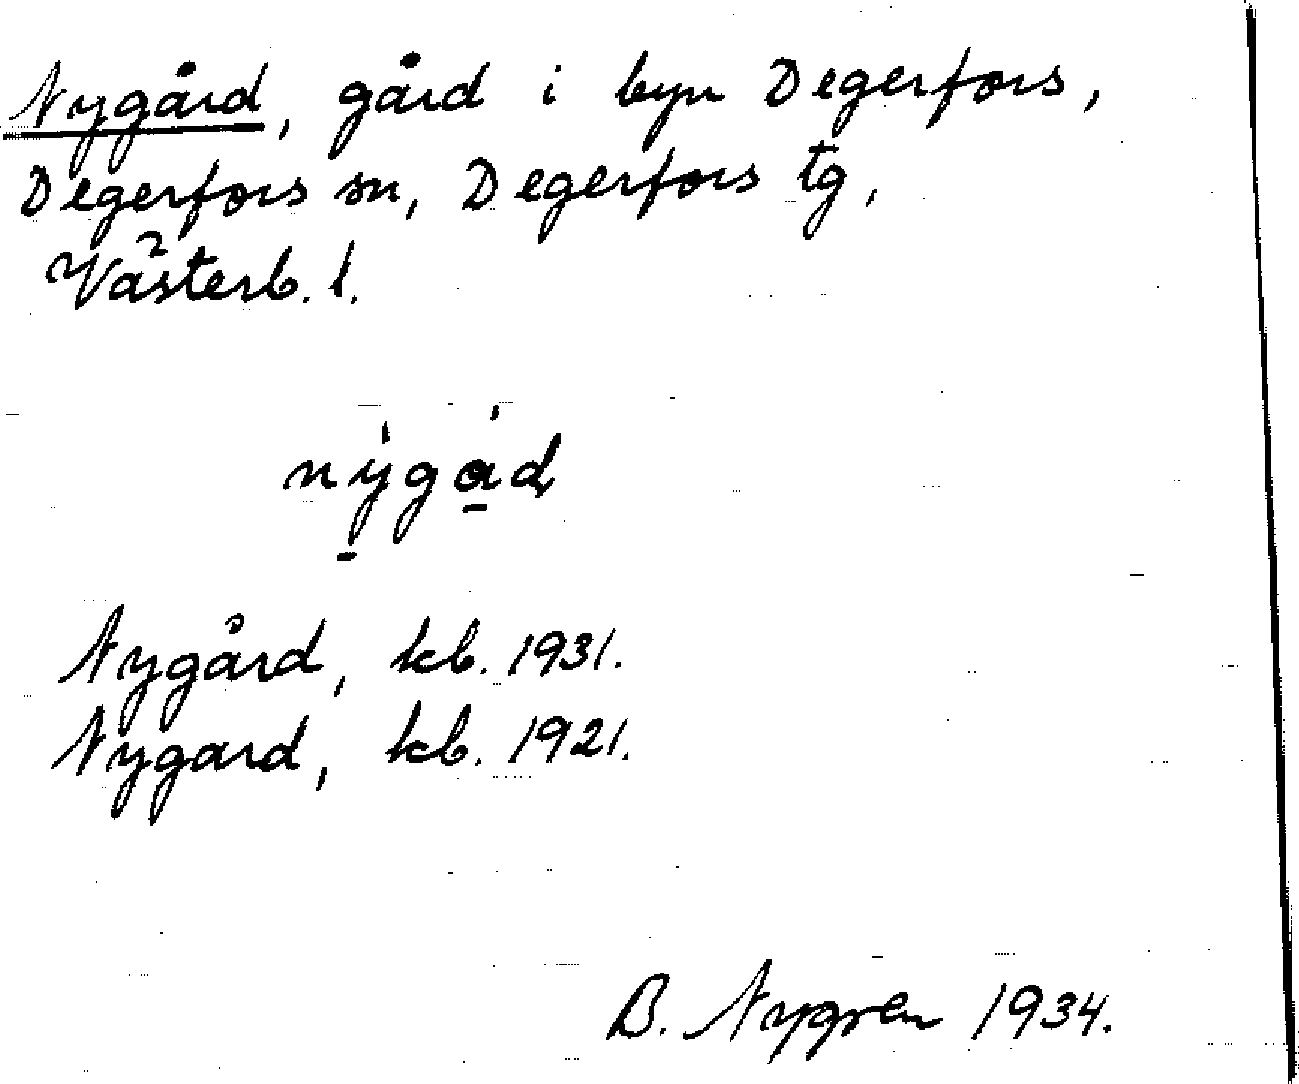 Nygård, gård i byn Degerfors,
Degerfors sn, Degerfors tg,
Västerb. l.
nygad
Nygård, kb. 1931.
Nygard, kb. 1921.
B. Nygren 1934.